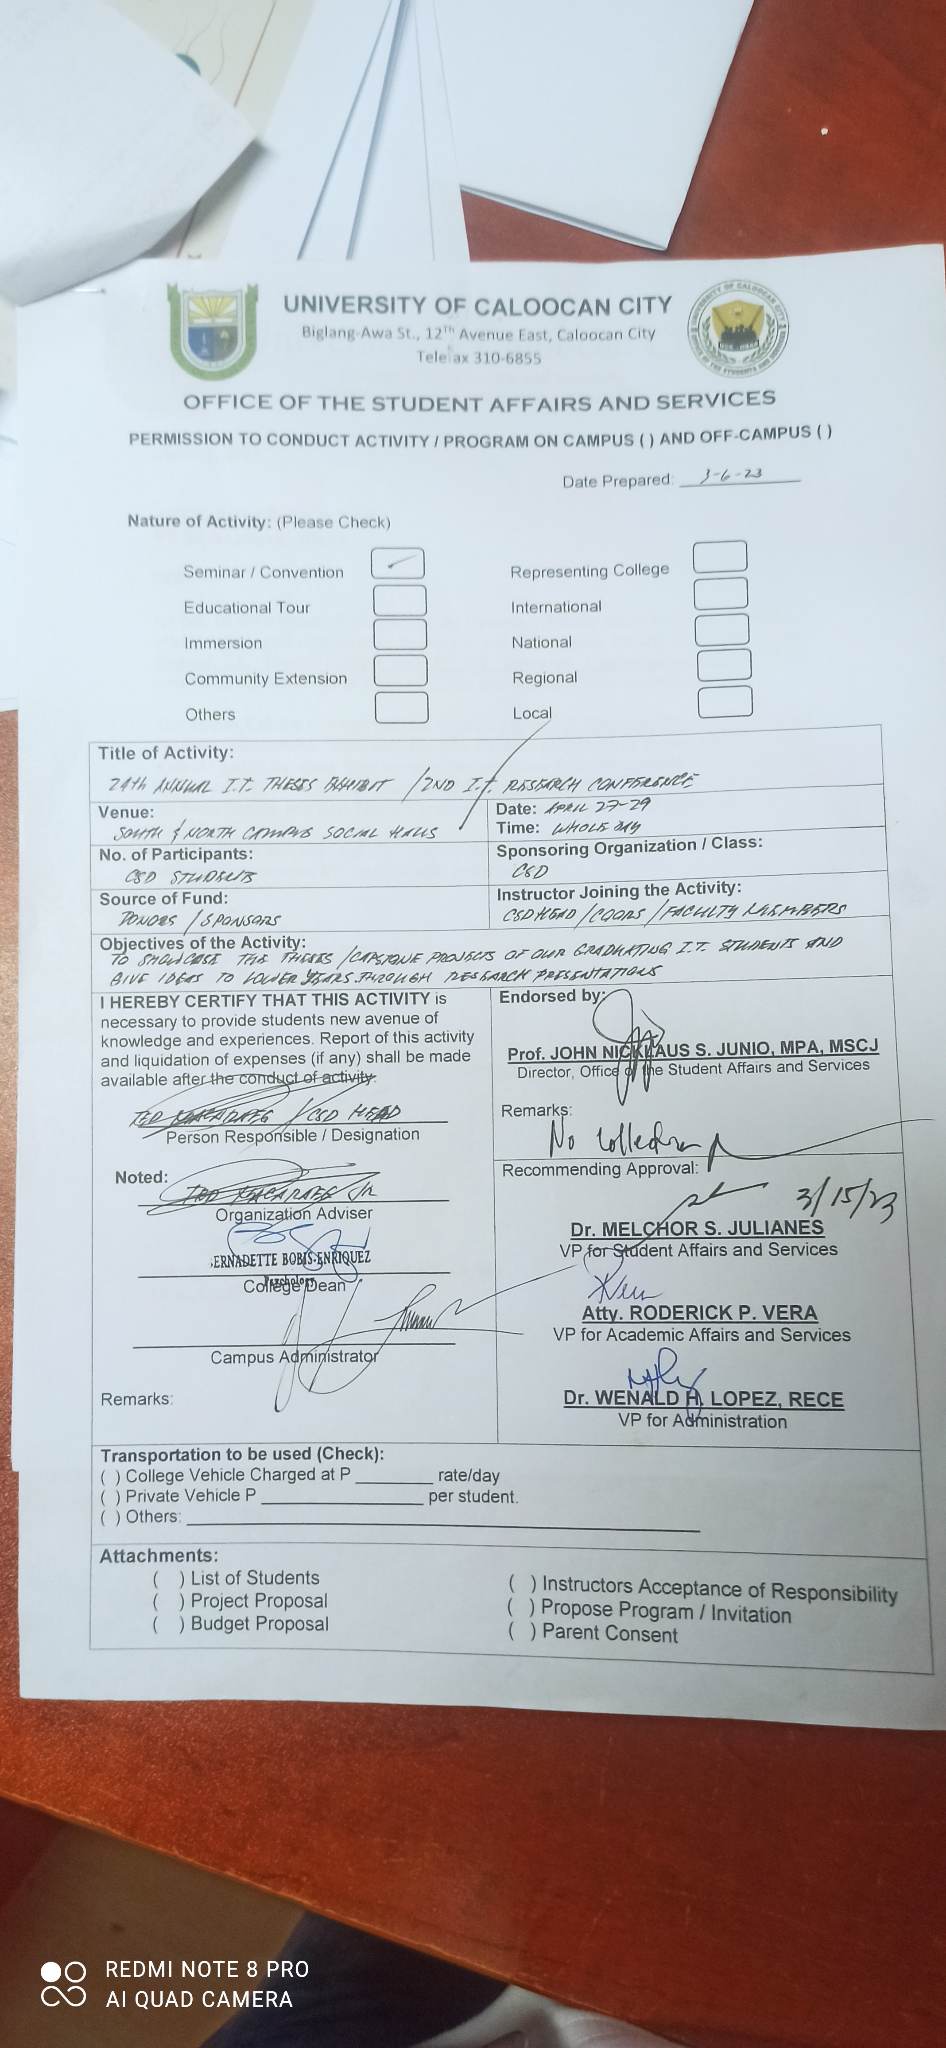 UNIVERSITY OF CALOOCAN CITY
Biglang-Awa St., 12Th Avenue East, Caloocan City
Telefax 310-6855
OFFICE OF THE STUDENT AFFAIRS AND SERVICES
PERMISSION TO CONDUCT ACTIVITY / PROGRAM ON CAMPUS ( ) AND OFF-CAMPUS ( )
Date Prepared: 3-6-23
Nature of Activity: (Please Check)
Seminar / Convention Representing College
Educational Tour International
Immersion National
Community Extension Regional
Others Local
Title of Activity:
24th ANNUAL I.T. THESIS EXHIBIT / 2ND I.T. RESEARCH CONFERENCE
Venue: Date: APRIL 27-29
SOUTH & NORTH CAMPUS SOCIAL HALLS Time: WHOLE DAY
No. of Participants: Sponsoring Organization / Class:
CSD STUDENTS CSD
Source of Fund: Instructor Joining the Activity:
DONORS / SPONSORS CSD HEAD / COORS / FACULTY MEMBERS
Objectives of the Activity:
TO SHOWCASE THE THESIS / CAPSTONE PROJECTS OF OUR GRADUATING I.T. STUDENTS AND
GIVE IDEAS TO LOWER YEARS THROUGH RESEARCH PRESENTATIONS
I HEREBY CERTIFY THAT THIS ACTIVITY is
necessary to provide students new avenue of
knowledge and experiences. Report of this activity
and liquidation of expenses (if any) shall be made
available after the conduct of activity.
TED / CSD HEAD
Person Responsible / Designation
Noted:
TED JR
Organization Adviser
BERNADETTE BOBIS-ENRIQUEZ
Psychology
College Dean
Campus Administrator
Remarks:
Endorsed by:
Prof. JOHN NICKLAUS S. JUNIO, MPA, MSCJ
Director, Office of the Student Affairs and Services
Remarks:
No collection
Recommending Approval:
3/15/23
Dr. MELCHOR S. JULIANES
VP for Student Affairs and Services
Atty. RODERICK P. VERA
VP for Academic Affairs and Services
Dr. WENALD H. LOPEZ, RECE
VP for Administration
Transportation to be used (Check):
( ) College Vehicle Charged at P ________ rate/day
( ) Private Vehicle P ________________ per student.
( ) Others: ________________
Attachments:
( ) List of Students ( ) Instructors Acceptance of Responsibility
( ) Project Proposal ( ) Propose Program / Invitation
( ) Budget Proposal ( ) Parent Consent
REDMI NOTE 8 PRO
AI QUAD CAMERA